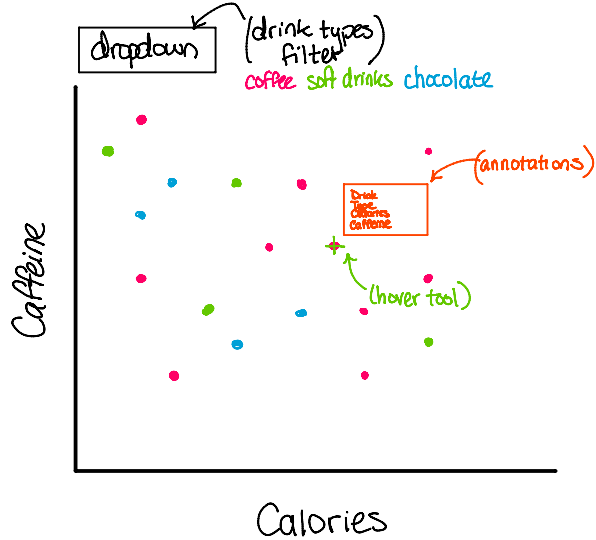 dropdown
(drink types
filter)
coffee soft drinks chocolate
(annotations)
Drink
Type
Calories
Caffeine
(hover tool)
Caffeine
Calories